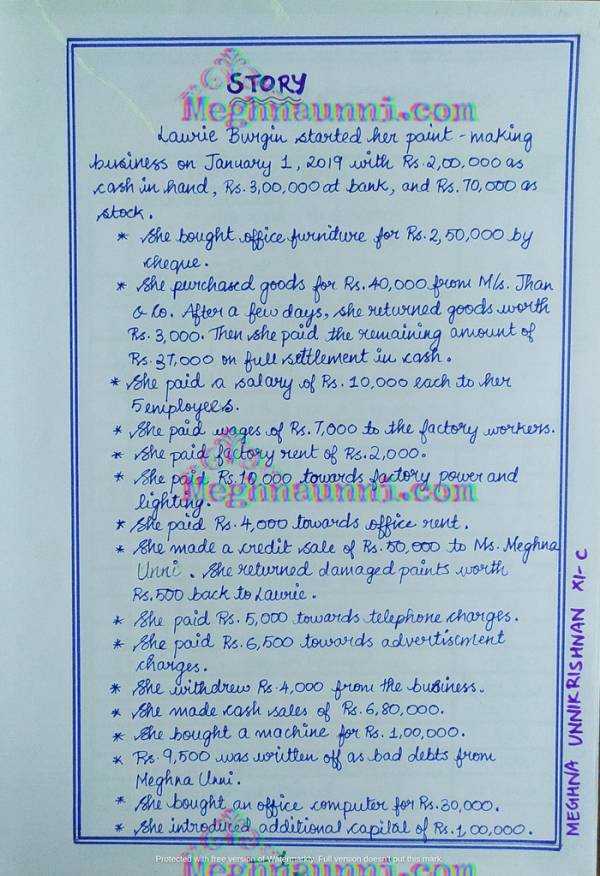 STORY
Meghnaunni.com
Laurie Burgin started her paint-making
business on January 1, 2019 with Rs. 2,00,000 as
cash in hand, Rs. 3,00,000 at bank, and Rs. 70,000 as
stock.
* She bought office furniture for Rs. 2,50,000 by
cheque.
* She purchased goods for Rs. 40,000 from M/s. Jhan
& Co. After a few days, she returned goods worth
Rs. 3,000. Then she paid the remaining amount of
Rs. 37,000 on full settlement in cash.
* She paid a salary of Rs. 10,000 each to her
5 employees.
* She paid wages of Rs. 7,000 to the factory workers.
* She paid factory rent of Rs. 2,000.
* She paid Rs. 10,000 towards factory power and
Meghnaunni.com
lighting.
* She paid Rs. 4,000 towards office rent.
* She made a credit sale of Rs. 50,000 to Ms. Meghna
Unni. She returned damaged paints worth
Rs. 500 back to Laurie.
* She paid Rs. 5,000 towards telephone charges.
* She paid Rs. 6,500 towards advertisment
charges.
* She withdrew Rs. 4,000 from the business.
* She made cash sales of Rs. 6,80,000.
* She bought a machine for Rs. 1,00,000.
* Rs. 9,500 was written off as bad debts from
Meghna Unni.
* She bought an office computer for Rs. 30,000.
* She introduced additional capital of Rs. 1,00,000.
MEGHNA UNNIKRISHNAN XI-C
Protected with free version of Watermarkly. Full version doesn't put this mark.
Meghnaunni.com